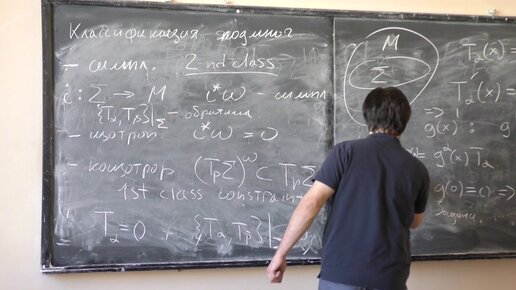 Классификация подмног.
– симпл. 2nd class
i: Σ → M i*ω – симпл
{T_α, T_β}|_Σ – обратима
– изотроп i*ω = 0
– коизотроп (T_pΣ)^ω ⊂ T_pΣ
1st class constraint
T_α = 0 {T_α, T_β}|
M
Σ
T_2(x) =
T_2(x) =
⇒
g(x) : g
= g²(x) T_2
g(0) = 0 ⇒
Задачи